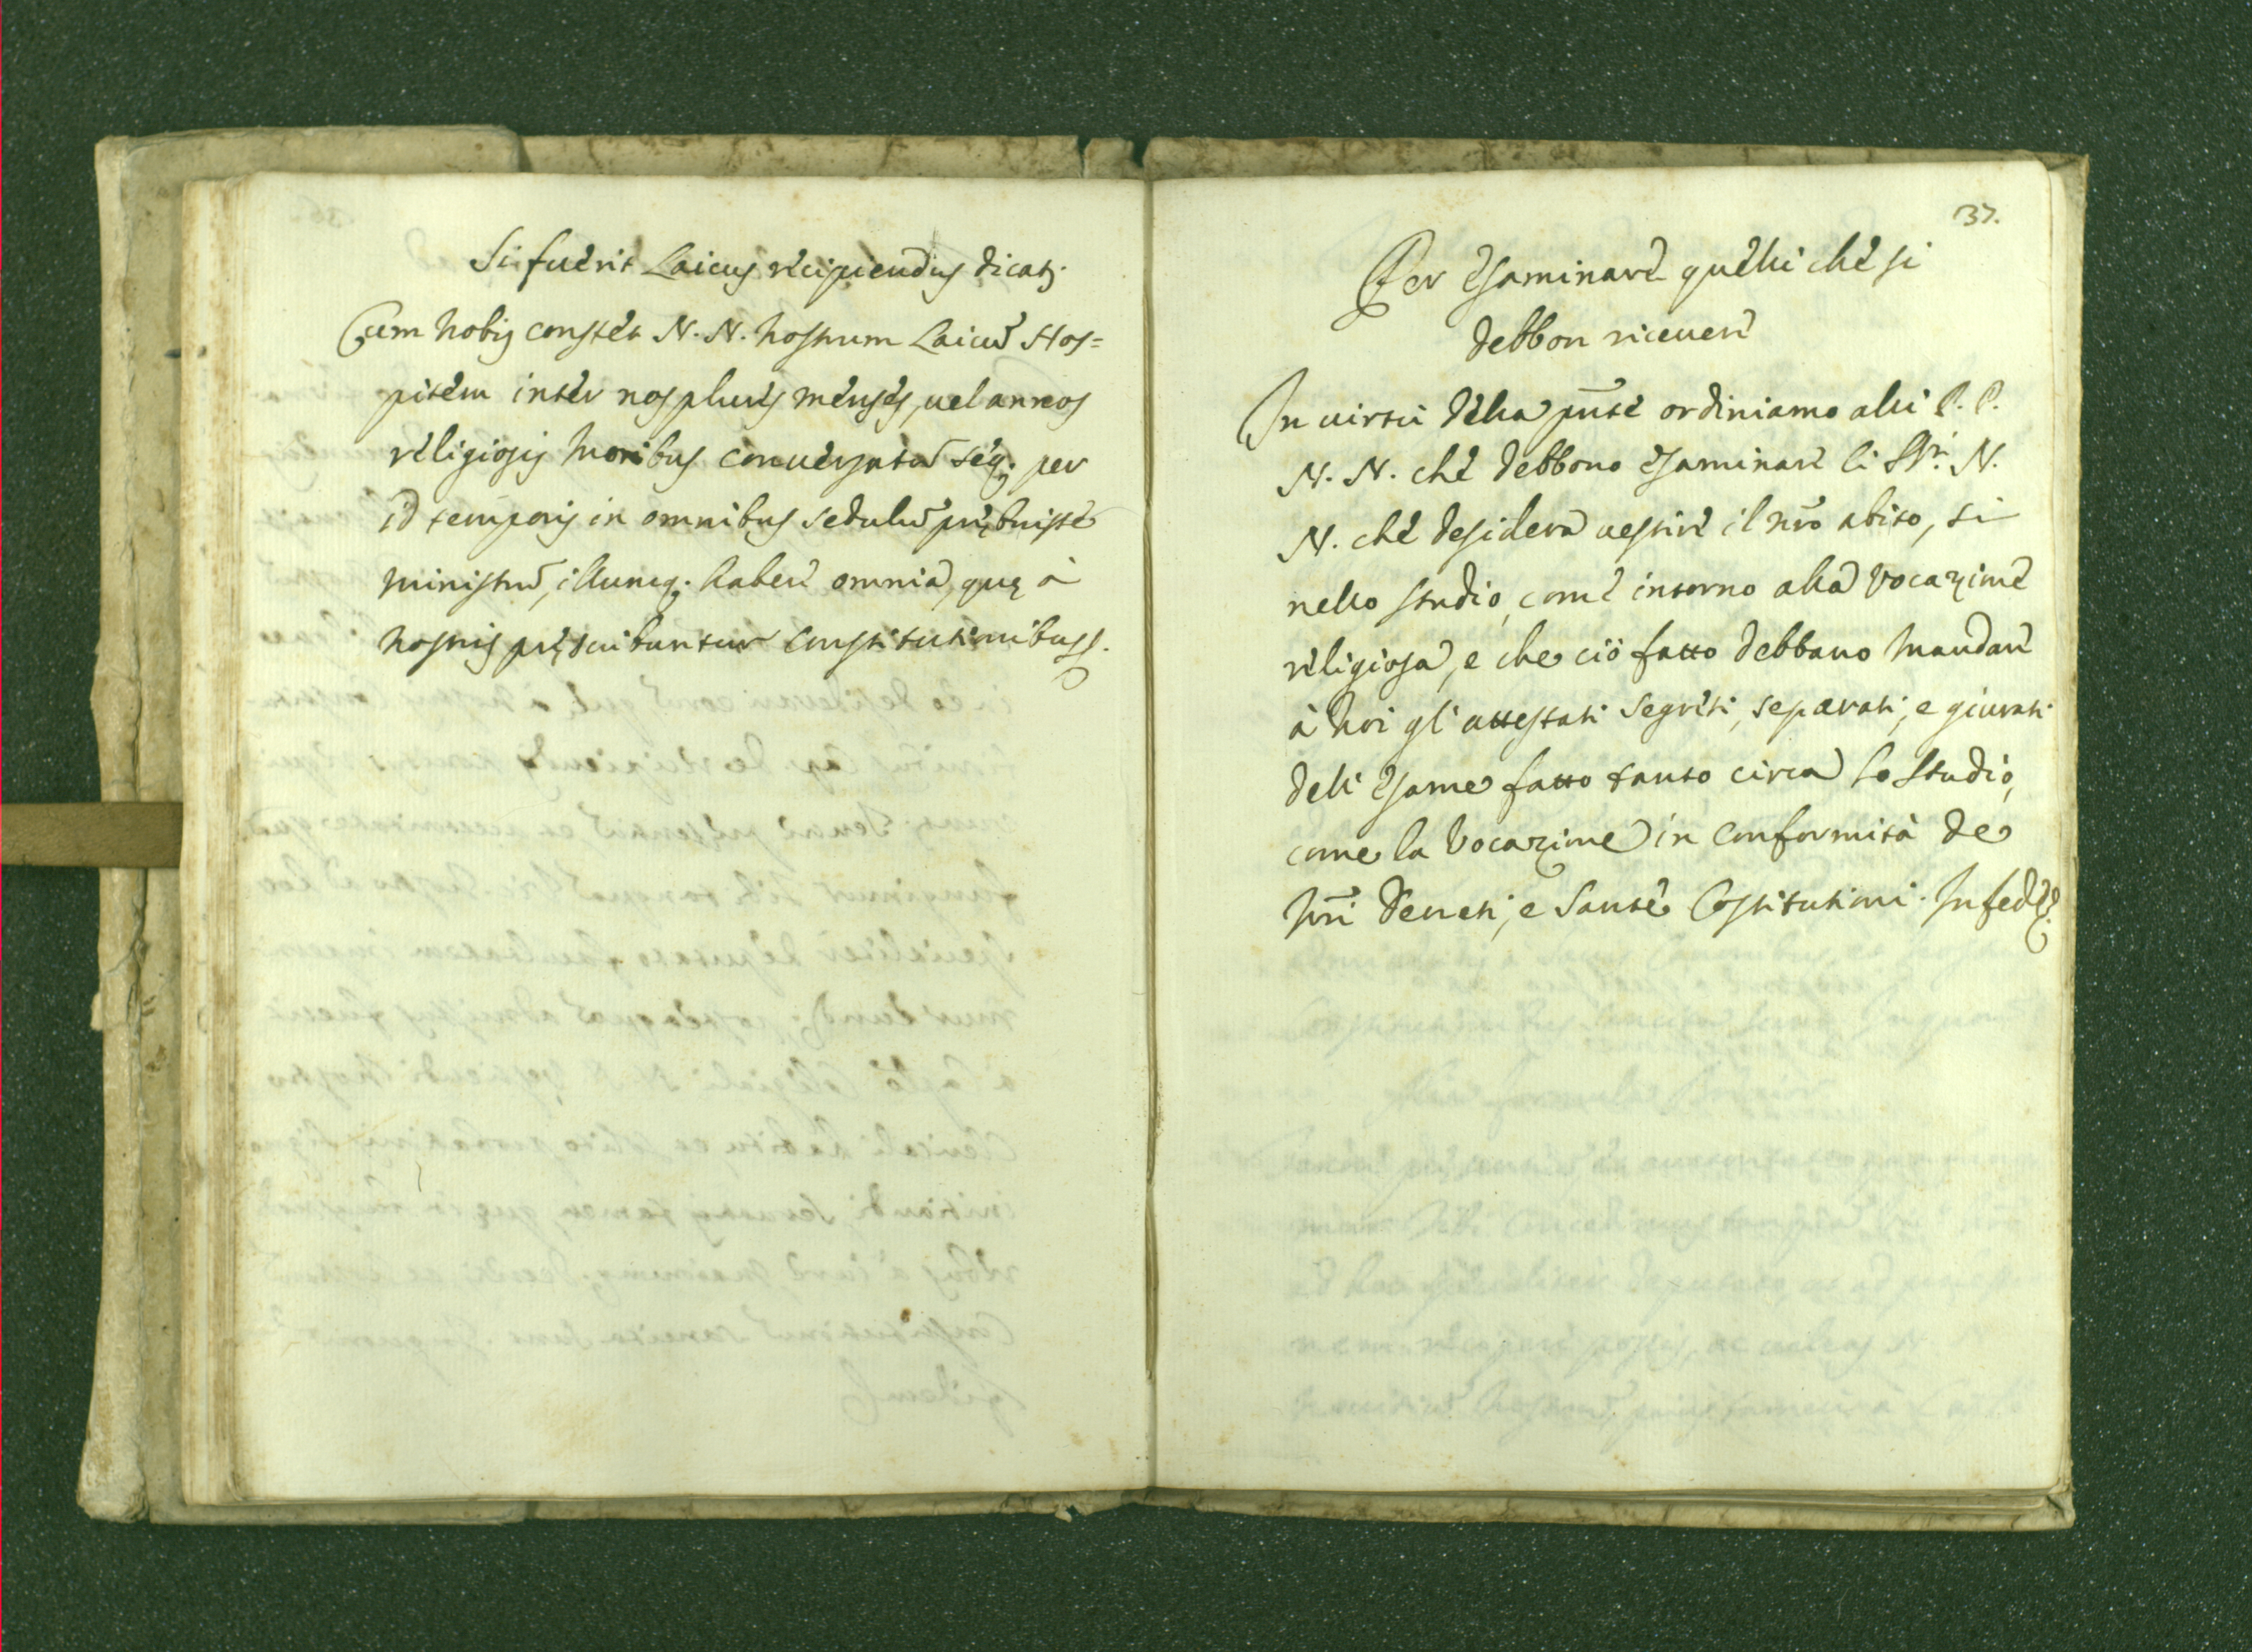 Si fuerit Laicus recipiendus dicat.
Cum nobis constet N. N. nostrum Laicũ Hos=
pitem inter nos plures menses, uel annos
religiosis moribus conuersatũ seq; per
id temporis in omnibus sedulũ prębuisse
ministrũ, illumq; habere omnia, quę à
nostris pręscribuntur Constitutionibus.
37.
Per esaminare quelli che si
debbon riceuere
In uirtù della pñte ordiniamo alli P. P.
N. N. che debbono esaminare li SS.ri N.
N. che desidera uestire il nr̃o abito, si
nello studio, come intorno alla Vocazione
religiosa, e che ciò fatto debbano mandare
à noi gl'attestati segreti, separati, e giurati
dell'esame fatto tanto circa lo studio,
come la Vocazione in conformità de
nr̃i Decreti, e Sante Costitutioni. In fede